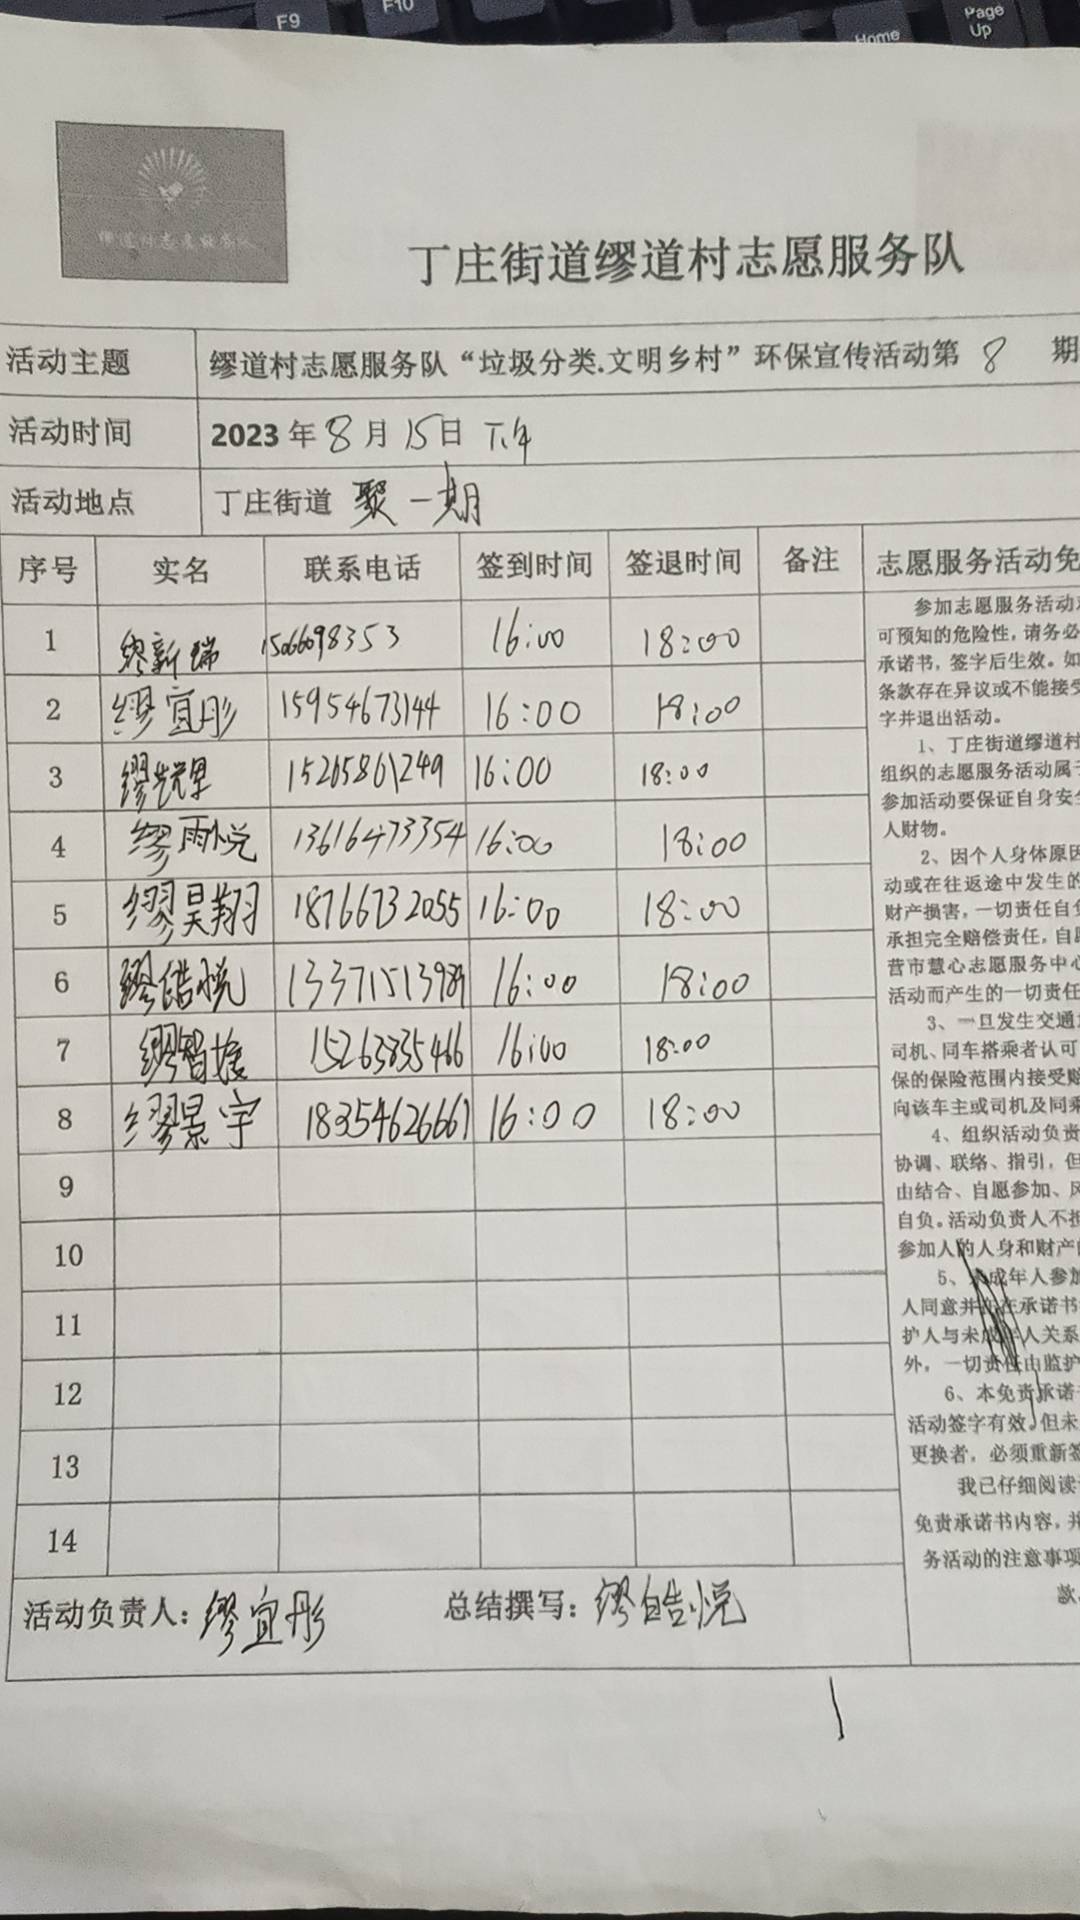 F9
F10
Home
Page
Up
缪道村志愿服务队
丁庄街道缪道村志愿服务队
活动主题 缪道村志愿服务队“垃圾分类.文明乡村”环保宣传活动第 8 期
活动时间 2023年8月15日 下午
活动地点 丁庄街道 聚一期
序号 实名 联系电话 签到时间 签退时间 备注 志愿服务活动免
1 缪新瑞 15066098353 16:00 18:00
2 缪宜彤 15954673144 16:00 18:00
3 缪 15265861249 16:00 18:00
4 缪雨悦 13616473354 16:00 18:00
5 缪昊翔 18766732055 16:00 18:00
6 缪皓悦 13371513989 16:00 18:00
7 缪智媛 15263835466 16:00 18:00
8 缪景宇 18354626661 16:00 18:00
9
10
11
12
13
14
参加志愿服务活动
可预知的危险性,请务必
承诺书,签字后生效。如
条款存在异议或不能接受
字并退出活动。
1、丁庄街道缪道村
组织的志愿服务活动属于
参加活动要保证自身安全
人财物。
2、因个人身体原因
动或在往返途中发生的
财产损害,一切责任自负
承担完全赔偿责任,自愿
营市慧心志愿服务中心
活动而产生的一切责任
3、一旦发生交通
司机、同车搭乘者认可
保的保险范围内接受赔
向该车主或司机及同乘
4、组织活动负责
协调、联络、指引,但
由结合、自愿参加、风
自负。活动负责人不担
参加人的人身和财产
5、未成年人参加
人同意并在承诺书
护人与未成年人关系
外,一切责任由监护
6、本免责承诺
活动签字有效。但未
更换者,必须重新签
我已仔细阅读
免责承诺书内容,并
务活动的注意事项
款
活动负责人:缪宜彤 总结撰写:缪皓悦